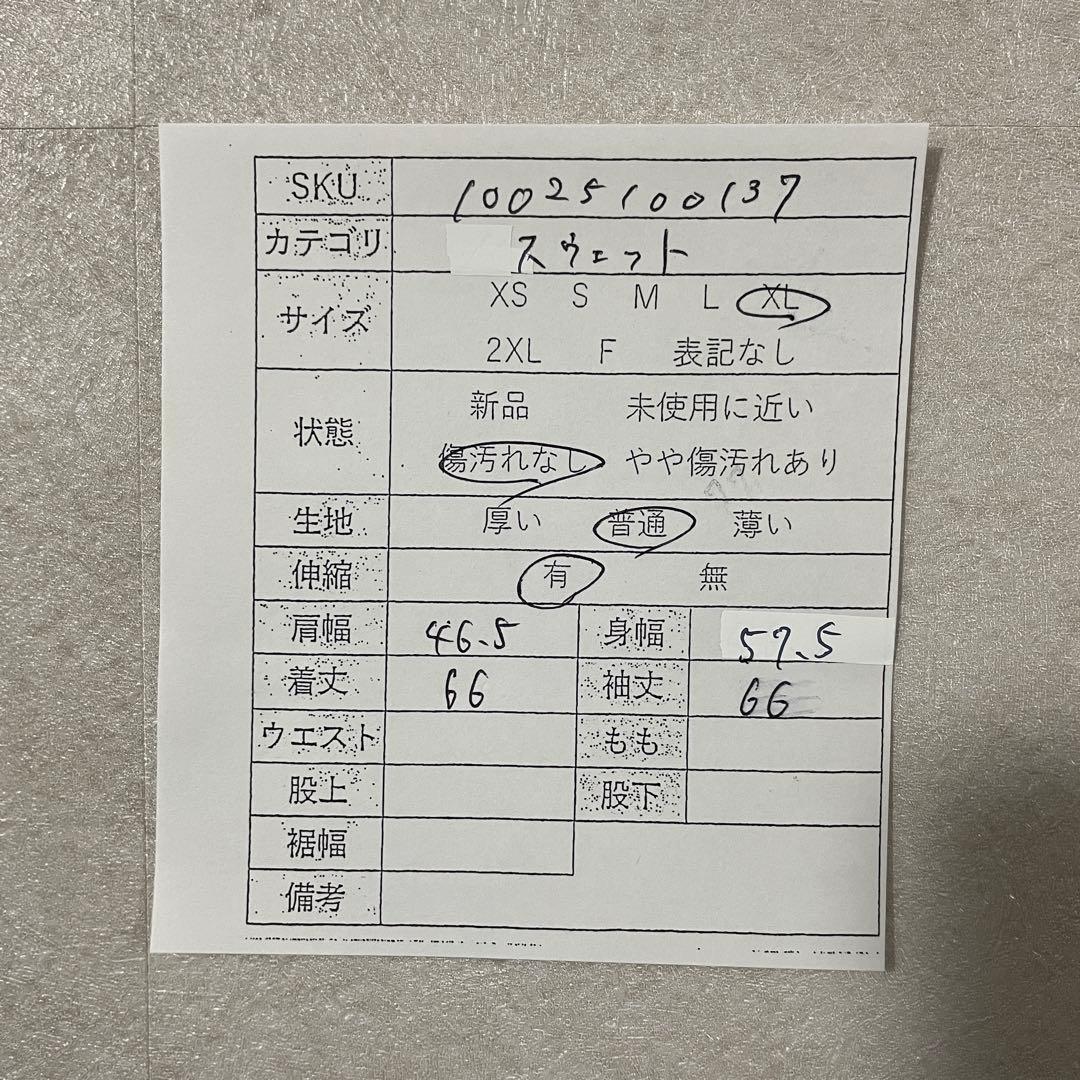 SKU 10025100137
カテゴリ スウェット
サイズ XS S M L XL
2XL F 表記なし
状態 新品 未使用に近い
傷汚れなし やや傷汚れあり
生地 厚い 普通 薄い
伸縮 有 無
肩幅 46.5 身幅 57.5
着丈 66 袖丈 66
ウエスト もも
股上 股下
裾幅
備考